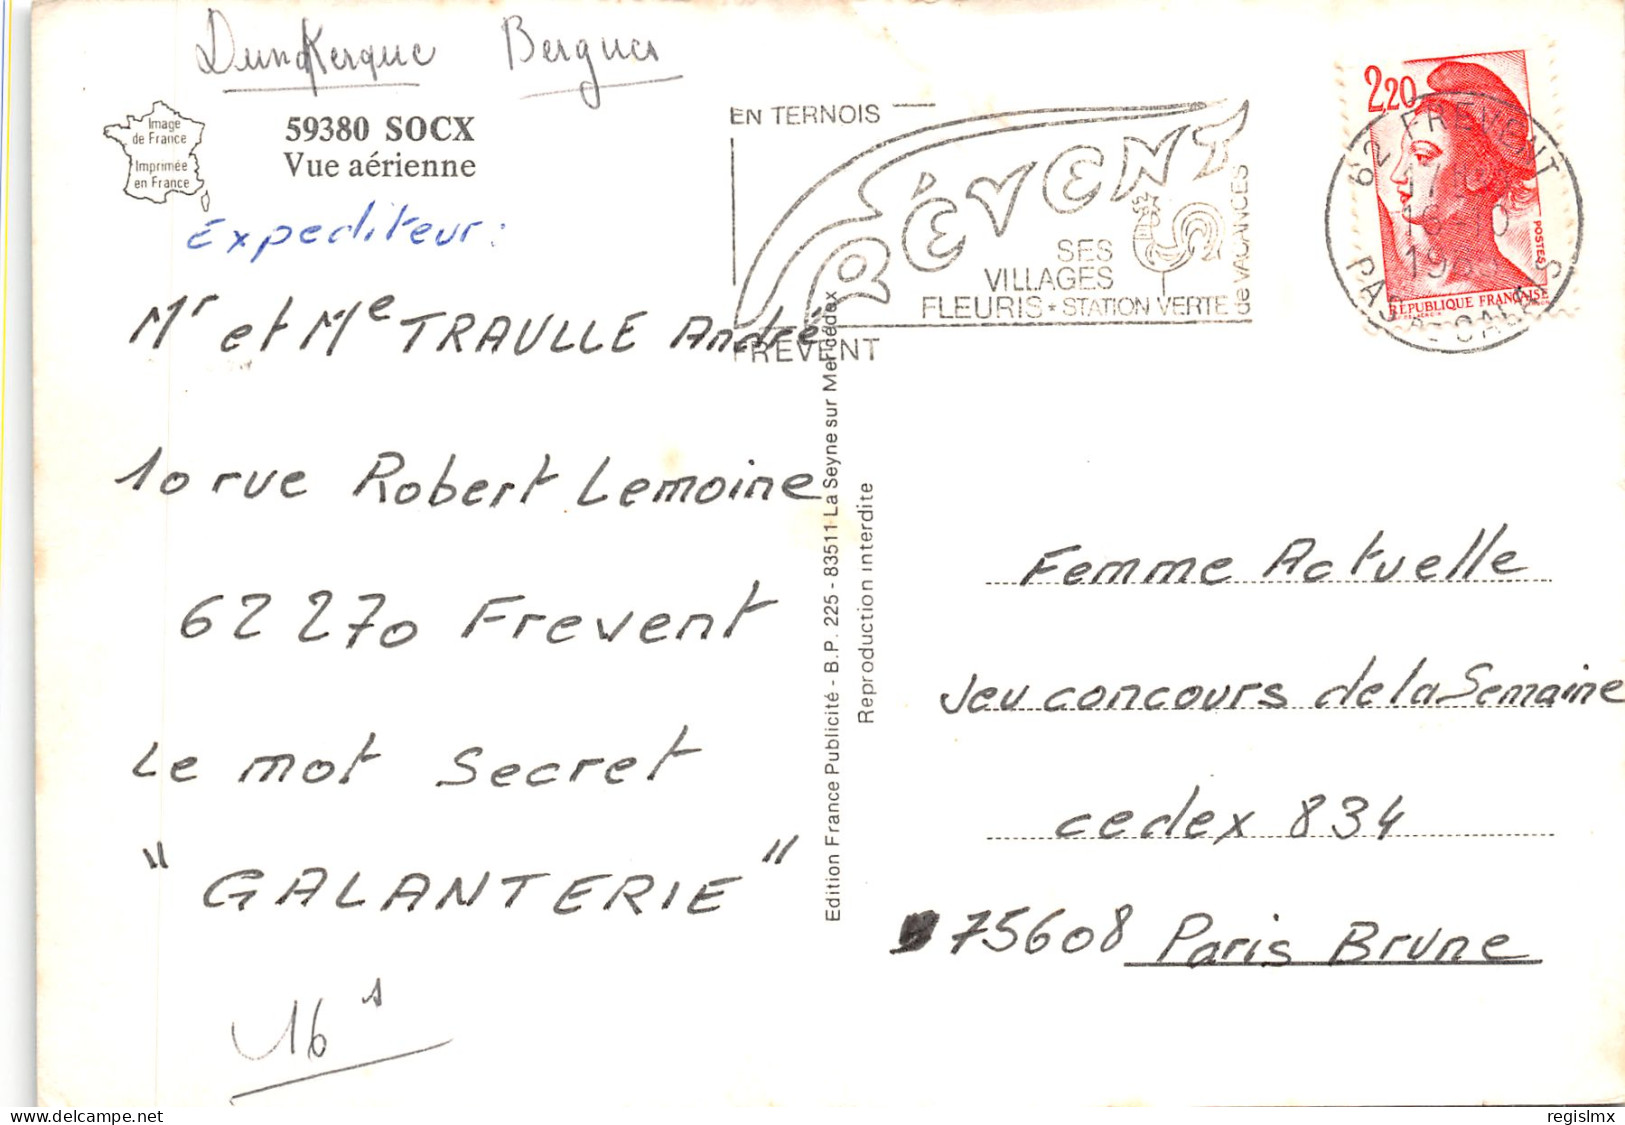 Dunkerque Bergues
Image
de France
Imprimée
en France
59380 SOCX
Vue aérienne
Expediteur:
Mr et Me TRAULLE André
10 rue Robert Lemoine
62270 Frevent
Le mot Secret
"GALANTERIE"
Edition France Publicité - B.P. 225 - 83511 La Seyne sur Mer Cédex
Reproduction interdite
EN TERNOIS
FRÉVENT
SES
VILLAGES
FLEURIS * STATION VERTE
de VACANCES
FREVENT
2,20
POSTES
REPUBLIQUE FRANÇAISE
62 FREVENT
PAS-DE-CALAIS
Femme Actuelle
Jeu concours de la Semaine
cedex 834
75608 Paris Brune
delcampe.net
regislmx